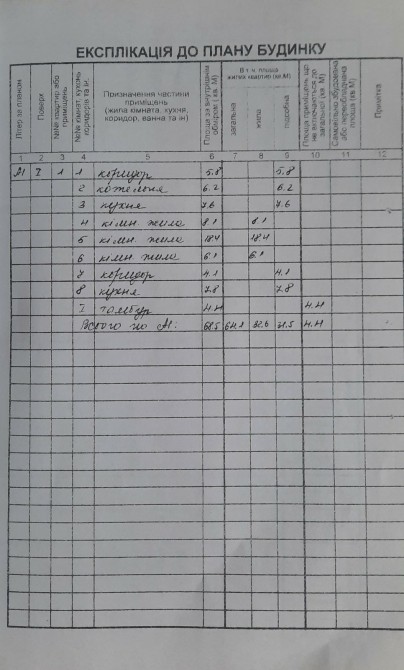 ЕКСПЛІКАЦІЯ ДО ПЛАНУ БУДИНКУ
Літер за планом
Поверх
№№ квартир або приміщень
№№ кімнат, кухонь коридорів та ін.
Призначення частини приміщень (жила кімната, кухня, коридор, ванна та ін)
Площа за внутрішнім обміром (кв. М)
В т.ч. площа жилих квартир (кв.М)
загальна
жила
підсобна
Площа приміщень що не включаються до загальної (кв. М)
Самовільно збудована або переобладнана площа (кв М)
Примітка
1 2 3 4 5 6 7 8 9 10 11 12
А1 I 1 1 коридор 5.8 5.8
2 котельня 6.2 6.2
3 кухня 7.6 7.6
4 кімн. жила 8.1 8.1
5 кімн. жила 18.4 18.4
6 кімн. жила 6.1 6.1
7 коридор 4.1 4.1
8 кухня 7.8 7.8
I тамбур 4.4 4.4
Всього по А1: 68.5 64.1 32.6 31.5 4.4